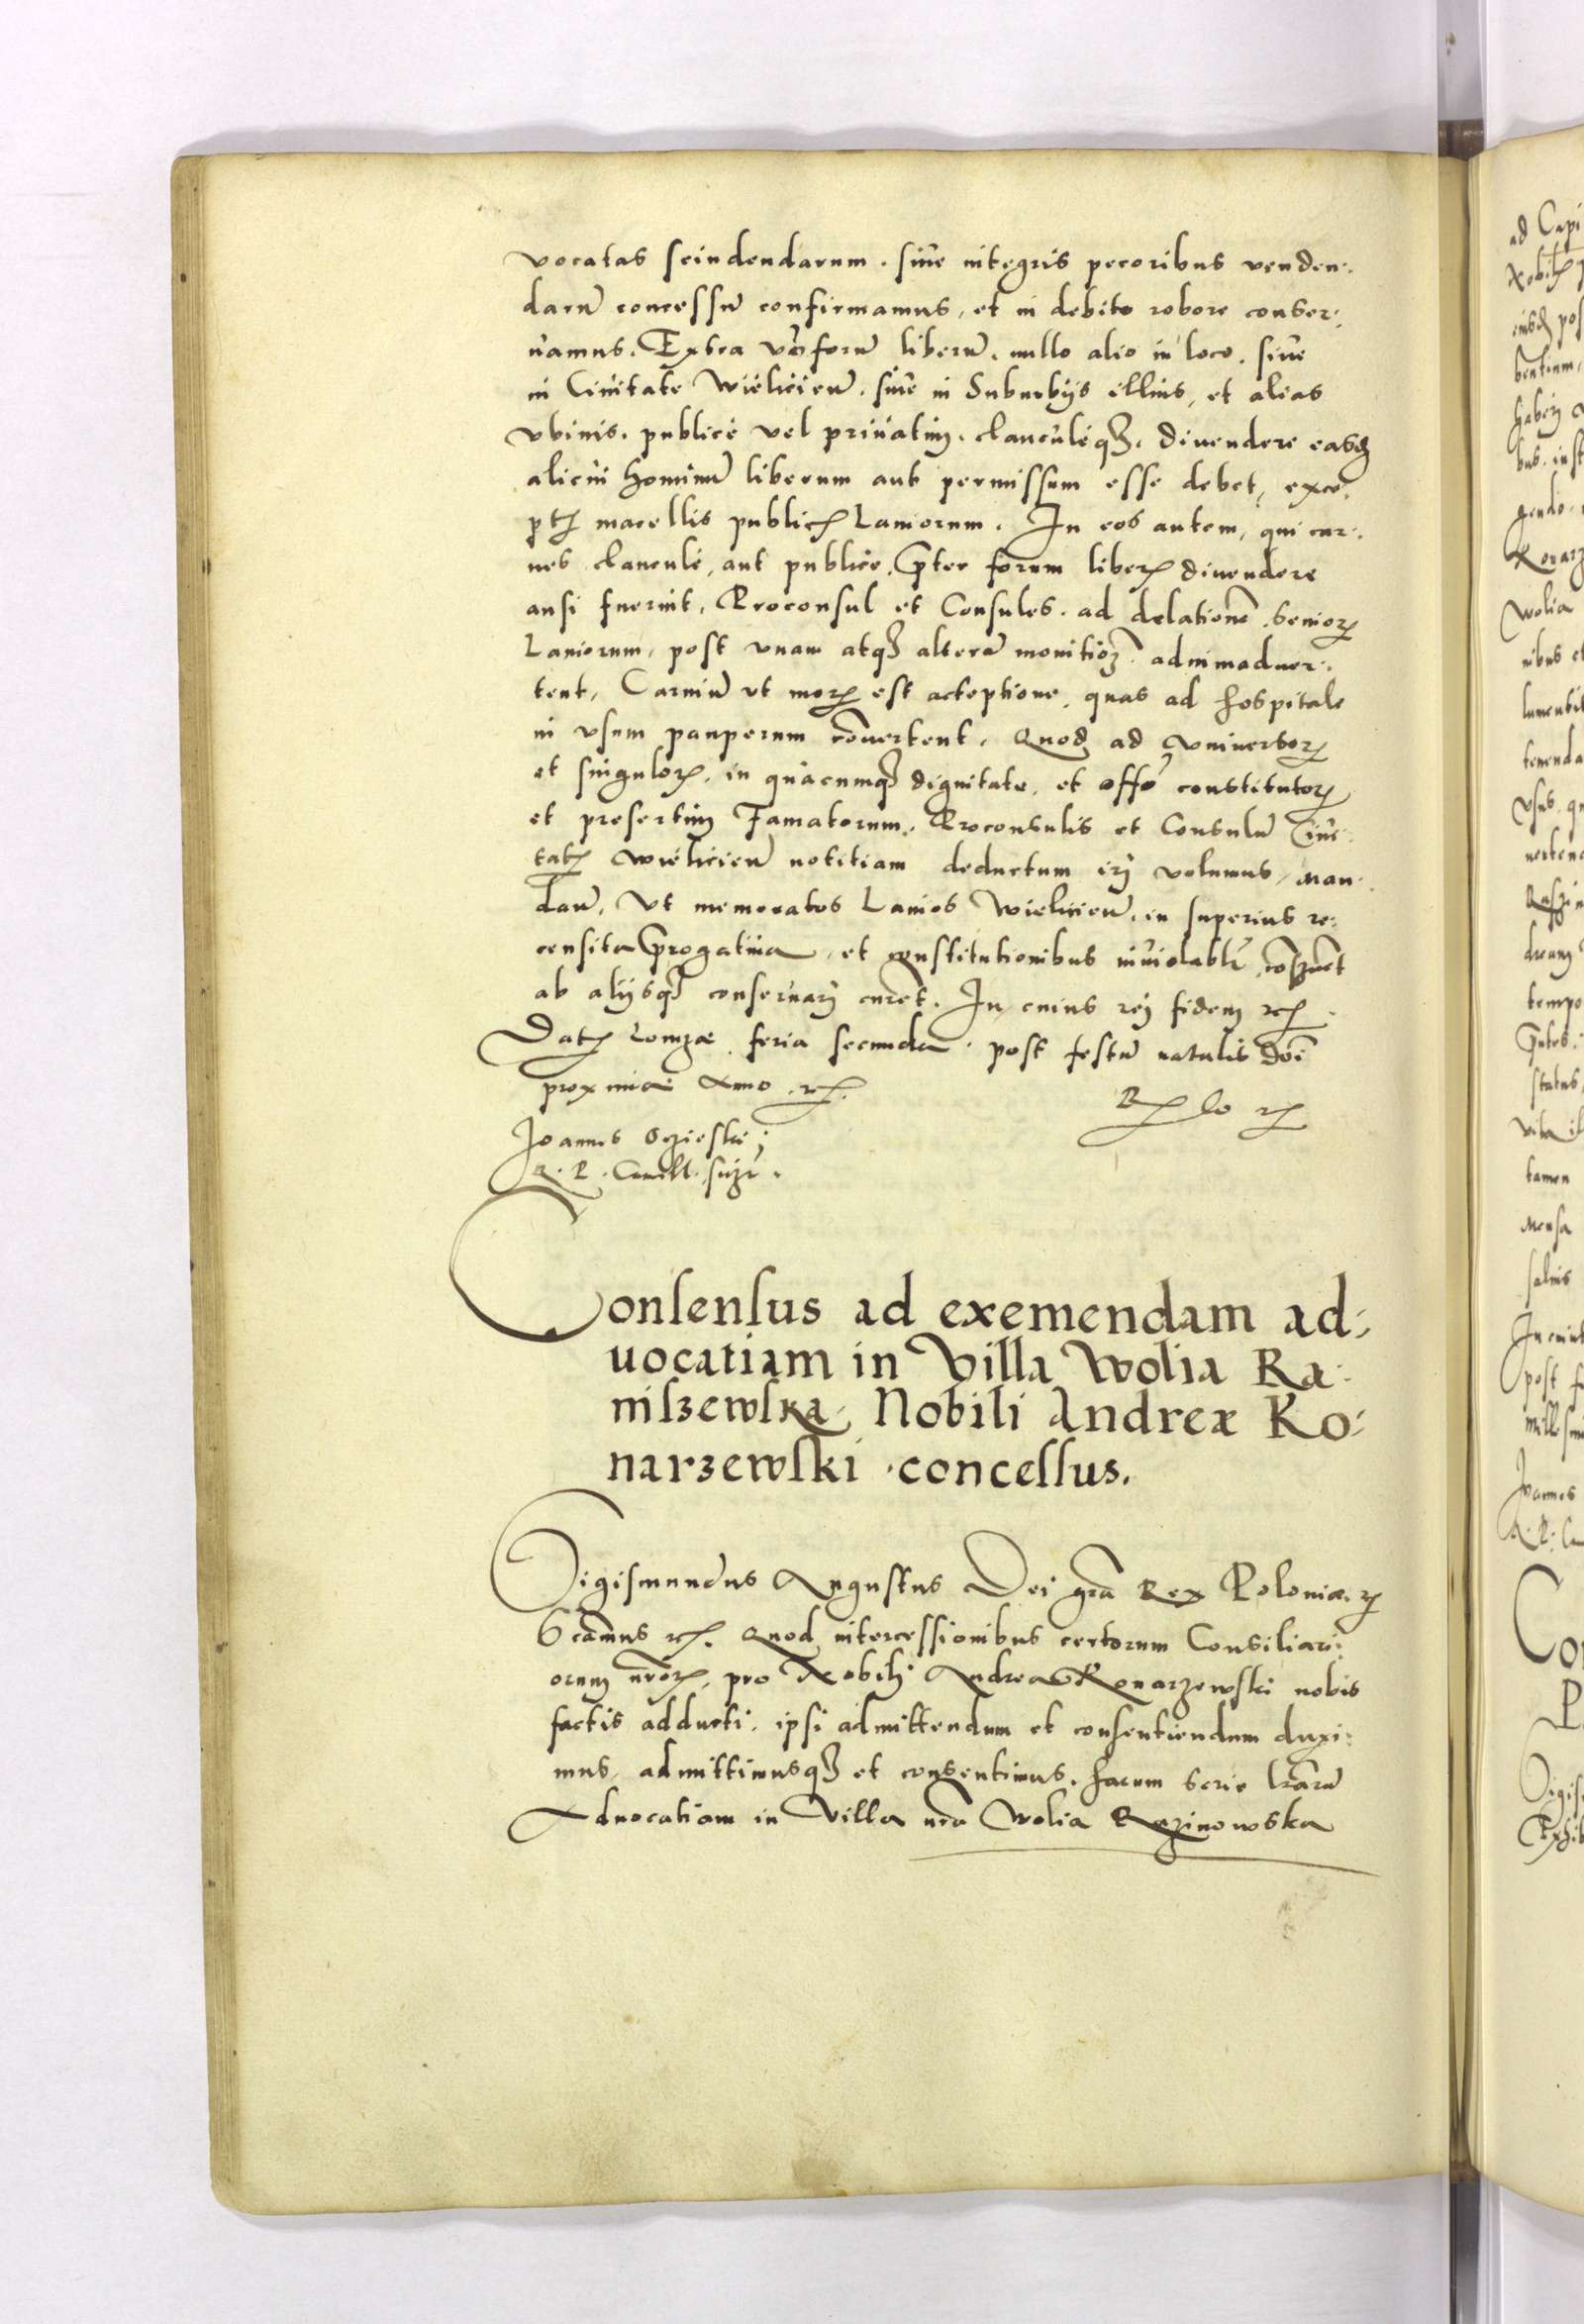 vocatas scindendarum. siue integris pecoribus venden:
darũ concessũ confirmamus, et in debito robore conser:
uamus. Extra v̈o forũ liberũ. nullo alio in loco. siue
in Ciuitate Wielicieñ. siue in Suburbijs illius, et alias
vbiuis. publicè vel priuatim. clanculéq₃. diuendere easdẽ
alicui hominũ liberum aut permissum esse debet, exce:
ptꝭ macellis publicꝭ Laniorum. In eos autem, qui car:
nes clanculè, aut publicè, p̃ter forum liberꝝ diuendere
ausi fuerint, Proconsul et Consules. ad delationẽ senioꝝ
Laniorum, post vnam atq₃ alterã monitioẽ. adnimaduer:
tent, Carniũ vt moꝝ est acceptione, quas ad hospitale
in vsum pauperum cõuertent. Quod ad vniuersoꝝ
et singuloꝝ. in quacumq₃ dignitate, et offo constitutoꝝ
et presertim Famatorum. Proconsulis et Consulũ Ciui:
tatꝭ Wielicieñ notitiam deductum irj volumus, Man:
dam̃, Vt memoratos Lanios Wielicieñ. in superius re:
censita p̃rogatiua, et constitutionibus inuiolablr̃ cõseruẽt
ab alijsq₃ conseruarj curẽt. In cuius rej fidem rcꝭ.
Datꝭ Lomzae feria secunda. post festũ natalis Dõi
proximã Anno rcꝭ.
Rꝭ do rꝭ
Joannes Oczieski
R. P. Cancell. sszt.
Consensus ad exemendam ad:
uocatiam in Villa Wolia Ra:
niszewska Nobili Andreæ Ko:
narzewski concessus.
Sigismundus Augustus Dei grã Rex Poloniæ. rꝭ
Scãmus rcꝭ. Quod intercessionibus certorum Consiliari:
orum nr̃oꝝ, pro Nobili Andrea Konarzewski nobis
factis adducti. ipsi admittendum et consentiendum duxi:
mus, admittimusq₃ et consentimus. harum serie lr̃arũ
Aduocatiam in Villa nrã Wolia Razinowska